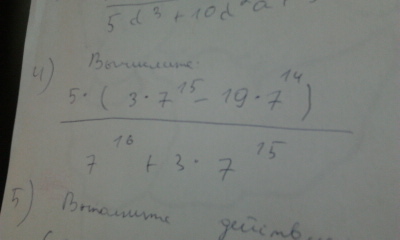 5d³ + 10d²a
4) Вычислите:
5 · ( 3 · 7¹⁵ − 19 · 7¹⁴ )
7¹⁶ + 3 · 7¹⁵
5) Выполните